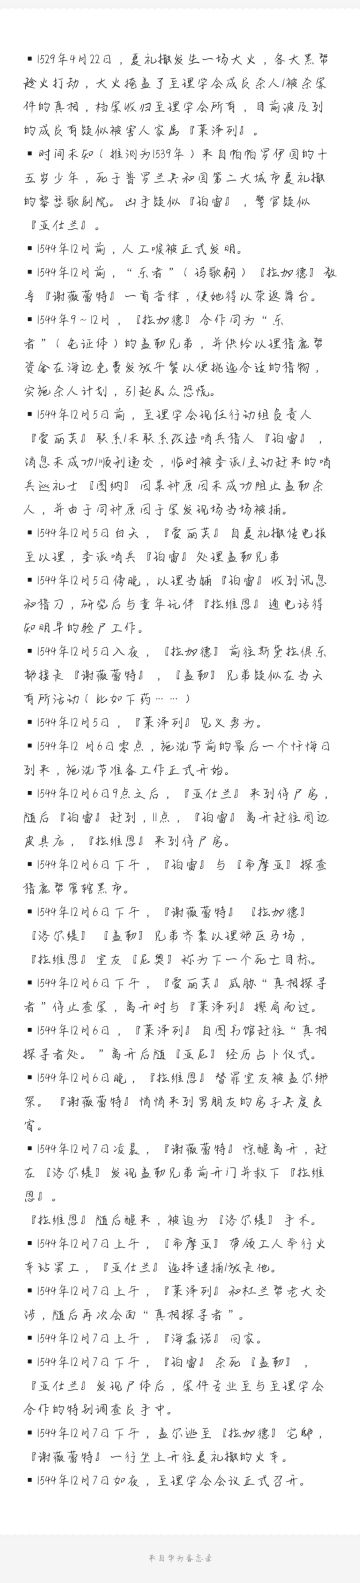 ▪1529年4月22日，夏礼撒发生一场大火，各大黑帮
趁火打动，大火掩盖了至理学会成员杀人/被杀案
件的真相，档案收归至理学会所有，目前波及到
的成员有疑似被害人家属『莱泽列』。
▪时间未知（推测为1539年）来自帕帕罗伊图的十
五岁少年，死于普罗兰共和国第二大城市夏礼撒
的黎瑟歌剧院。凶手疑似『铂雷』，警官疑似
『亚仕兰』。
▪1544年12月前，人工喉被正式发明。
▪1544年12月前，“乐者”（诗歌嗣）『拉加德』教
导『谢薇蕾特』一首音律，使她得以荣返舞台。
▪1544年9~12月，『拉加德』合作同为“乐
者”（色证体）的孟勒兄弟，并供给以理猎鹿帮
资金在海边免费发放午餐以便挑选合适的猎物，
实施杀人计划，引起民众恐慌。
▪1544年12月5日前，至理学会现任行动组负责人
『爱丽芙』联系/未联系改造哨兵猎人『铂雷』，
消息未成功/顺利递交，临时被委派/主动赶来的哨
兵巡礼士『图纳』因某种原因未成功阻止孟勒杀
人，并由于同种原因于案发现场当场被捕。
▪1544年12月5日白天，『爱丽芙』自夏礼撒传电报
至以理，委派哨兵『铂雷』处理孟勒兄弟
▪1544年12月5日傍晚，以理当铺『铂雷』收到讯息
和猎刀，研究后与童年玩伴『拉维恩』通电话得
知明早的验尸工作。
▪1544年12月5日入夜，『拉加德』前往斯黛拉俱乐
部接走『谢薇蕾特』，『孟勒』兄弟疑似在当天
有所活动（比如下药……）
▪1544年12月5日，『莱泽列』见义勇为。
▪1544年12 月6日零点，施洗节前的最后一个忏悔日
到来，施洗节准备工作正式开始。
▪1544年12月6日9点之后，『亚仕兰』来到停尸房，
随后『铂雷』赶到，11点，『铂雷』离开赶往周边
皮具店，『拉维恩』来到停尸房。
▪1544年12月6日下午，『铂雷』与『希摩亚』探查
猎鹿帮管辖黑市。
▪1544年12月6日下午，『谢薇蕾特』『拉加德』
『洛尔缇』『孟勒』兄弟齐聚以理郊区马场，
『拉维恩』室友『尼奥』称为下一个死亡目标。
▪1544年12月6日下午，『爱丽芙』威胁“真相探寻
者”停止查案，离开时与『莱泽列』擦肩而过。
▪1544年12月6日，『莱泽列』自图书馆赶往“真相
探寻者处。”离开后随『亚尼』经历占卜仪式。
▪1544年12月6日晚，『拉维恩』替罪室友被孟尔绑
架。『谢薇蕾特』悄悄来到男朋友的房子共度良
宵。
▪1544年12月7日凌晨，『谢薇蕾特』惊醒离开，赶
在『洛尔缇』发现孟勒兄弟前开门并救下『拉维
恩』。
『拉维恩』随后醒来，被迫为『洛尔缇』手术。
▪1544年12月7日上午，『希摩亚』带领工人举行火
车站罢工，『亚仕兰』选择逮捕/放走他。
▪1544年12月7日上午，『莱泽列』和杜兰帮老大交
涉，随后再次会面“真相探寻者”。
▪1544年12月7日上午，『海森诺』回家。
▪1544年12月7日下午，『铂雷』杀死『孟勒』，
『亚仕兰』发现尸体后，案件专业至与至理学会
合作的特别调查员手中。
▪1544年12月7日下午，孟尔逃至『拉加德』宅邸，
『谢薇蕾特』一行坐上开往夏礼撒的火车。
▪1544年12月7日如夜，至理学会会议正式召开。
来自华为备忘录